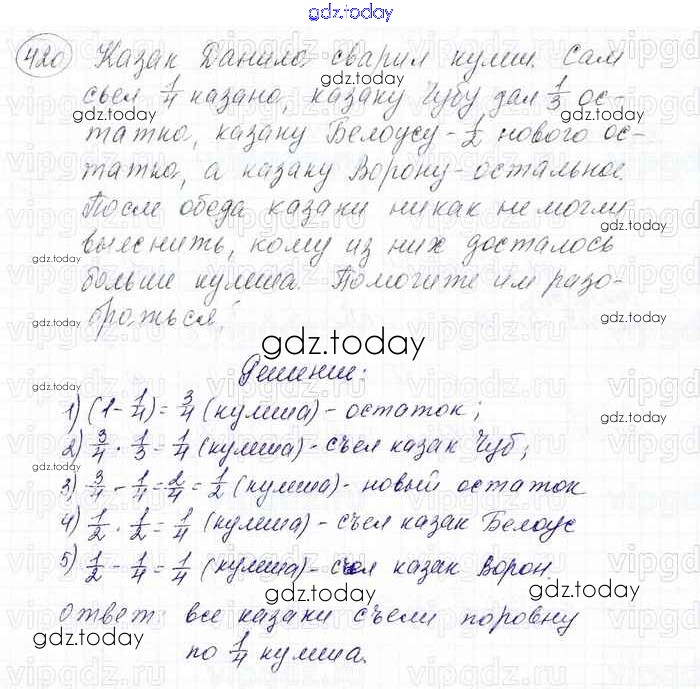 gdz.today
420 Казак Данило сварил кулиш. Сам
съел 1/4 казана, казаку Чубу дал 1/3 ос-
татка, казаку Белоусу - 1/2 нового ос-
татка, а казаку Ворону - остальное.
После обеда казаки никак не могли
выяснить, кому из них досталось
больше кулиша. Помогите им разо-
браться!
gdz.today
Решение:
1) (1 - 1/4) = 3/4 (кулиша) - остаток;
2) 3/4 · 1/3 = 1/4 (кулиша) - съел казак Чуб;
3) 3/4 - 1/4 = 2/4 = 1/2 (кулиша) - новый остаток
4) 1/2 · 1/2 = 1/4 (кулиша) - съел казак Белоус
5) 1/2 - 1/4 = 1/4 (кулиша) - съел казак Ворон.
Ответ: все казаки съели поровну
по 1/4 кулиша.